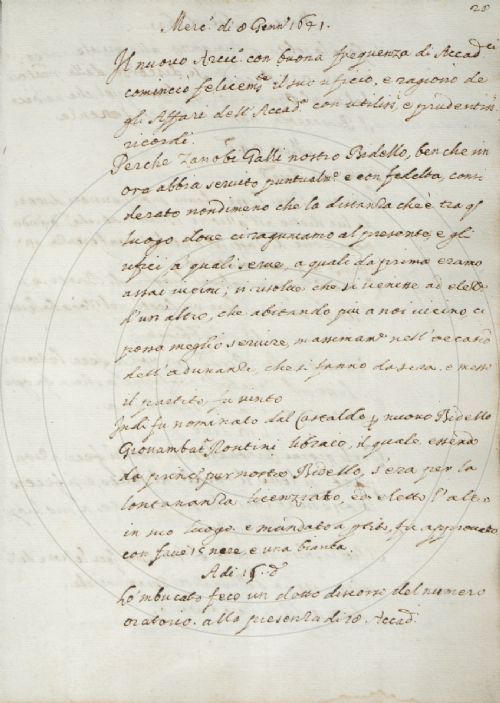 28
Merc. di 8 Genn.o 1641.
Il nuovo Arcic. con buona frequenza di Accad.ci
cominciò felicem.te il suo uficio, e ragionò de
gli Affari dell'Accad.a con utiliss.i e prudentiss.i
ricordi.
Perche Zanobi Galli nostro Bidello, benche in
ora abbia servito puntualm.e e con fedeltà, consi
derato nondimeno che la distanza che è tra q.l
luogo, dove ci raguniamo al presente, e gli
ufici a quali serve, a quali da prima eramo
assai vicini; si risolve che si venisse ad elez.e
d'un'altro, che abitando più a noi vicino, ci
possa meglio servire, massimam.e nell'occasio
dell'adunanze, che si fanno da sera. e messo
il partito, fu vinto
Indi fu nominato dal Castaldo p nuovo Bidello
Giovambat.a Rontini libraro, il quale essendo
da princ. per nostro Bidello, s'era per la
lontananza licenziato, ed eletto l'altro
in suo luogo. e mandato a ptito, fu approvato
con fave 15 nere, e una bianca.
A dì 15. d.o
Lo'mbucato fece un dotto discorso del numero
oratorio. alla presenza di 20 Accad.i